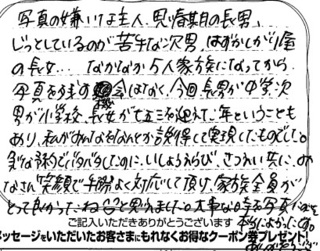 写真の嫌いな主人、思春期の長男、
じっとしているのが苦手な次男、はずかしがり屋
の長女… なかなか5人家族になってから
写真をとる機会はなく、今回長男が中学、次
男が小学校、長女が七五三を迎えた年ということも
あり、私がみんなをなんとか説得して実現したものでした。
いしょうえらび、きつけ
なさん笑顔で手際よく対応して頂け、家族全員が
とって良かったねと思えました。大事な時の写真
ご記入いただきありがとうございます
メッセージをいただいたお客さまにもれなくお得なクーポン券プレゼント!